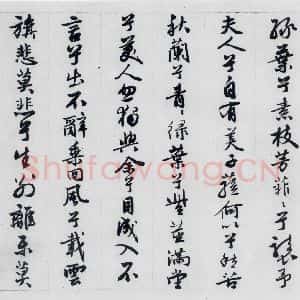 綠葉兮素枝芳菲〻兮襲予
夫人兮自有美子蓀何以兮愁苦
秋蘭兮青〻綠葉兮紫莖滿堂
兮美人忽獨與余兮目成入不
言兮出不辭乘回風兮載雲
旗悲莫悲兮生別離樂莫
Shufawang.CN